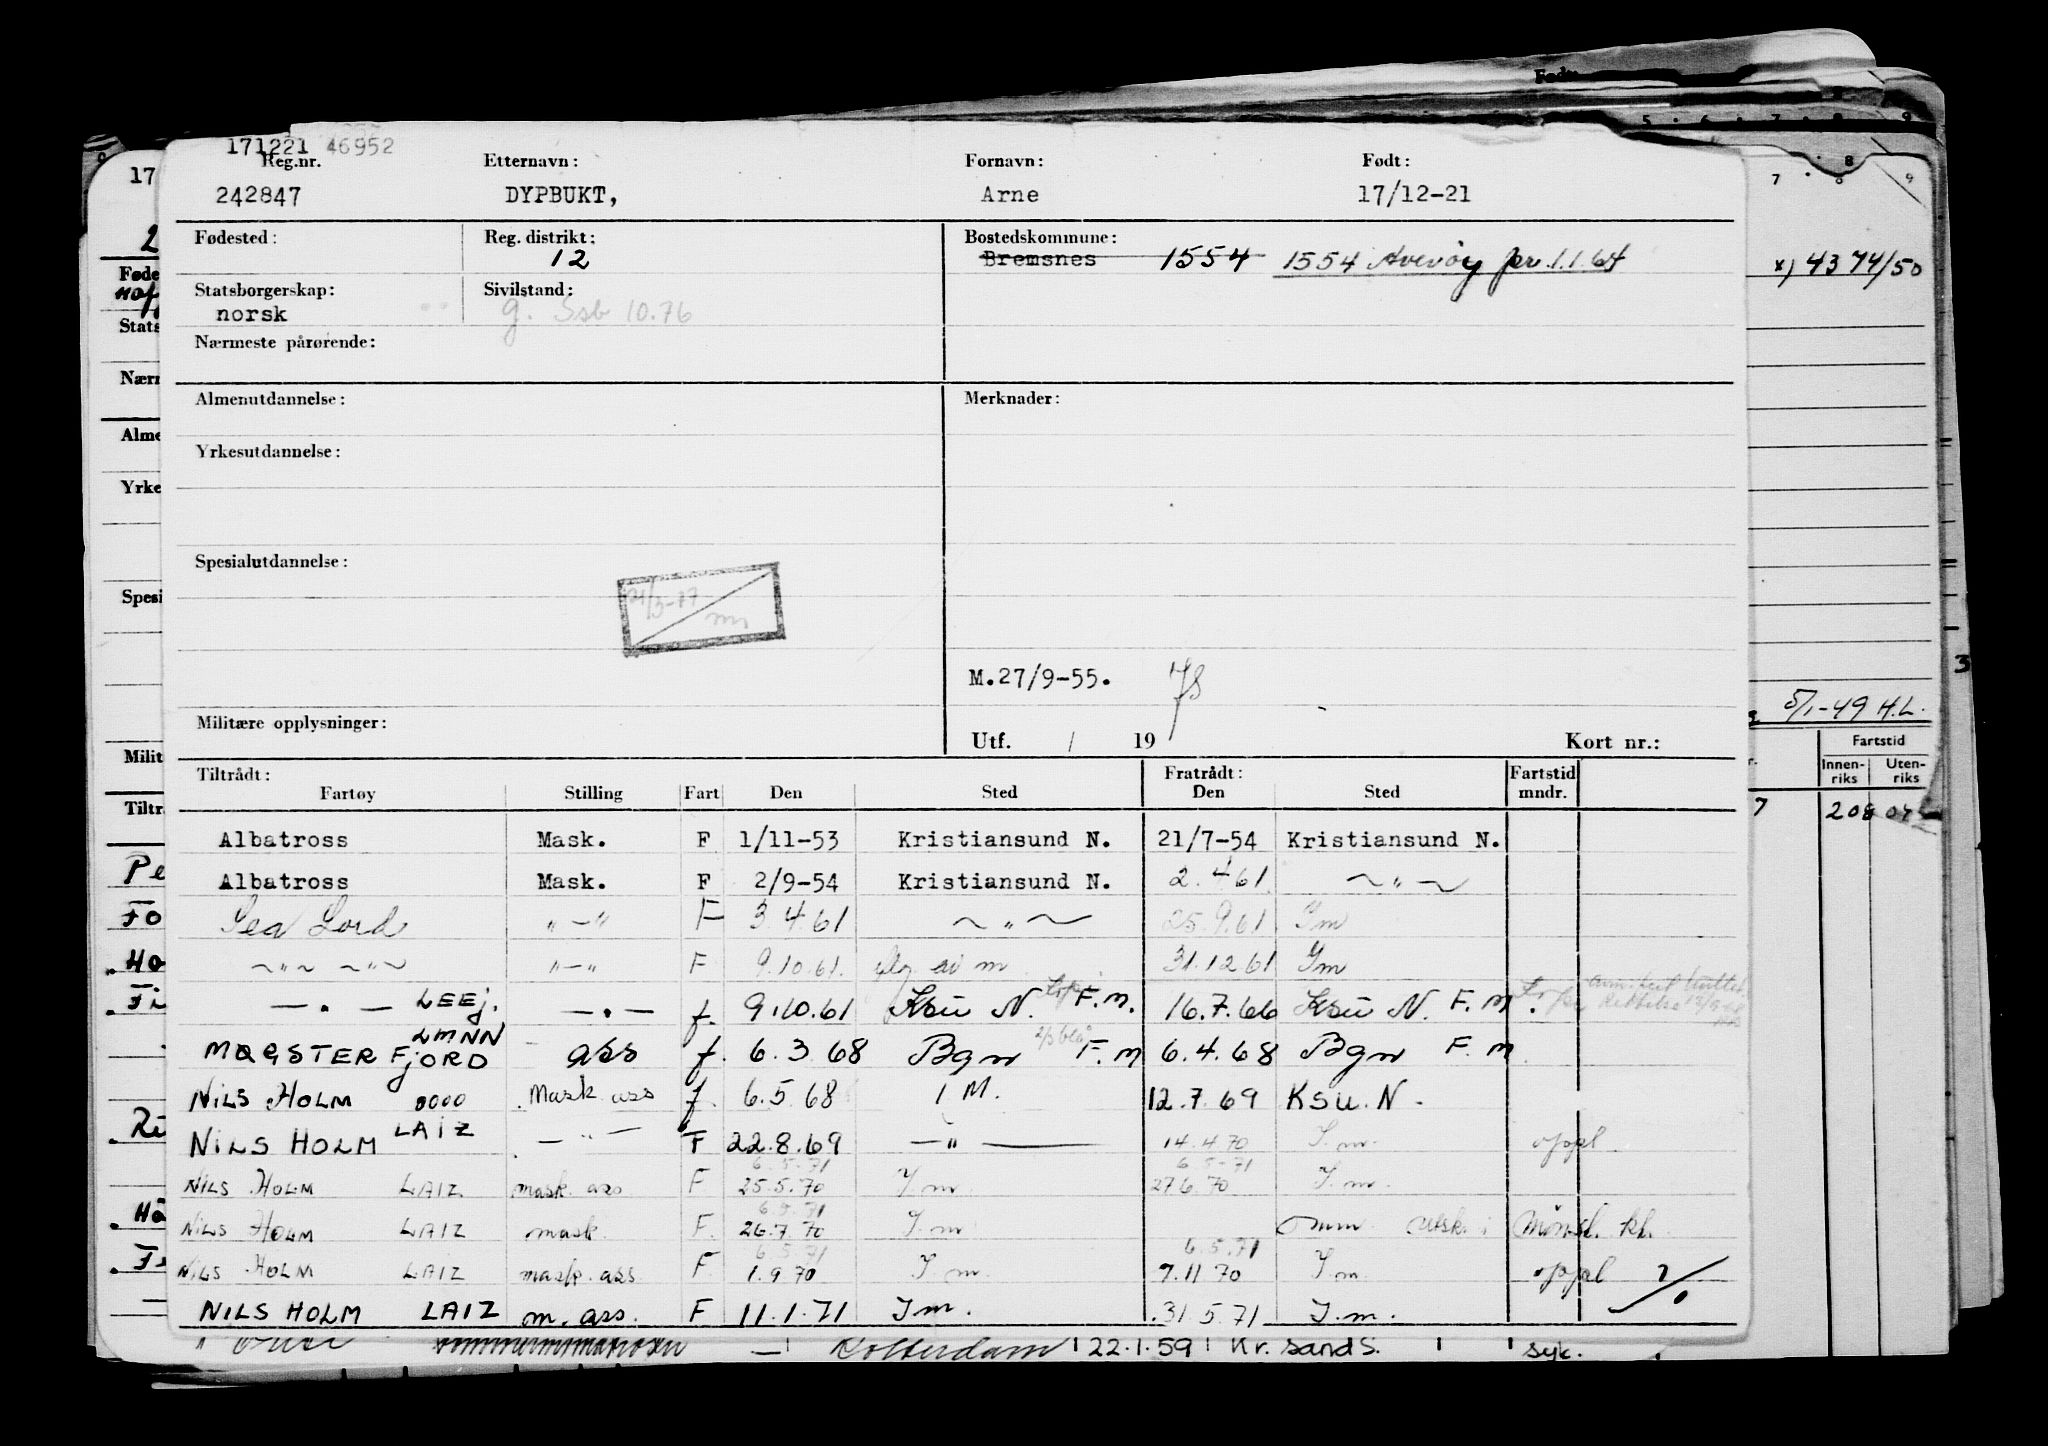 171221 46952
Reg.nr. Etternavn: Fornavn: Født:
242847 DYPBUKT, Arne 17/12-21
Fødested: Reg. distrikt: Bostedskommune:
12 Bremsnes 1554 1554 Averøy pr. 1.1.64
Statsborgerskap: Sivilstand:
norsk g. Ssb 10.76
Nærmeste pårørende:
Almenutdannelse: Merknader:
Yrkesutdannelse:
Spesialutdannelse:
21/3-77
M.27/9-55.
Militære opplysninger: Utf. / 19 Kort nr.:
Tiltrådt: Fratrådt: Fartstid
Fartøy Stilling Fart Den Sted Den Sted mndr.
Albatross Mask. F 1/11-53 Kristiansund N. 21/7-54 Kristiansund N.
Albatross Mask. F 2/9-54 Kristiansund N. 2.4 61 ~ " ~
Sea Lord " — " F 3.4.61 ~ " ~ 25.9.61 Im
~ " ~ ~ " ~ " — " F 9.10.61. m 31.12 61 Im
— " — LEEJ. — " — f. 9.10.61 Ksu N. F.M. 16.7.66 Ksu N. F.M.
LMNN
MØGSTERFJORD ass f. 6.3.68 Bgn F.M 6.4.68 Bgn F.M.
NILS HOLM OOOO Mask. ass f. 6.5.68 I M. 12.7.69 KSU.N.
NILS HOLM LAIZ — " — F 22.8.69 — " — 14.4.70 I.m. oppl
6.5.71 6.5-71
NILS HOLM LAIZ mask. ass F. 25.5.70 I m 27 6.70 I.m.
6.5.71
NILS HOLM LAIZ mask. F. 26.7.70 I.m utsk. i
6.5.71 6.5.71
NILS HOLM LAIZ mask. ass F 1.9 70 I m. 7.11 70 I m oppl
NILS HOLM LAIZ m. ass. F 11.1.71 I m. 31.5.71 I.m.
— Rotterdam 22.1.59 Kr. sand S. syk.
17
Føde
Stats
Nærn
Alme
Yrke
Spesi
Milit
Tiltr
Pe
Fo
Ho
Fi
Ri
Hå
Født
5 . 6 . 7 . 8 . 9
7 . 8 9
x) 4374/50
3
5/1-49 H.L.
Fartstid
Innen-
riks Uten-
riks
7 208